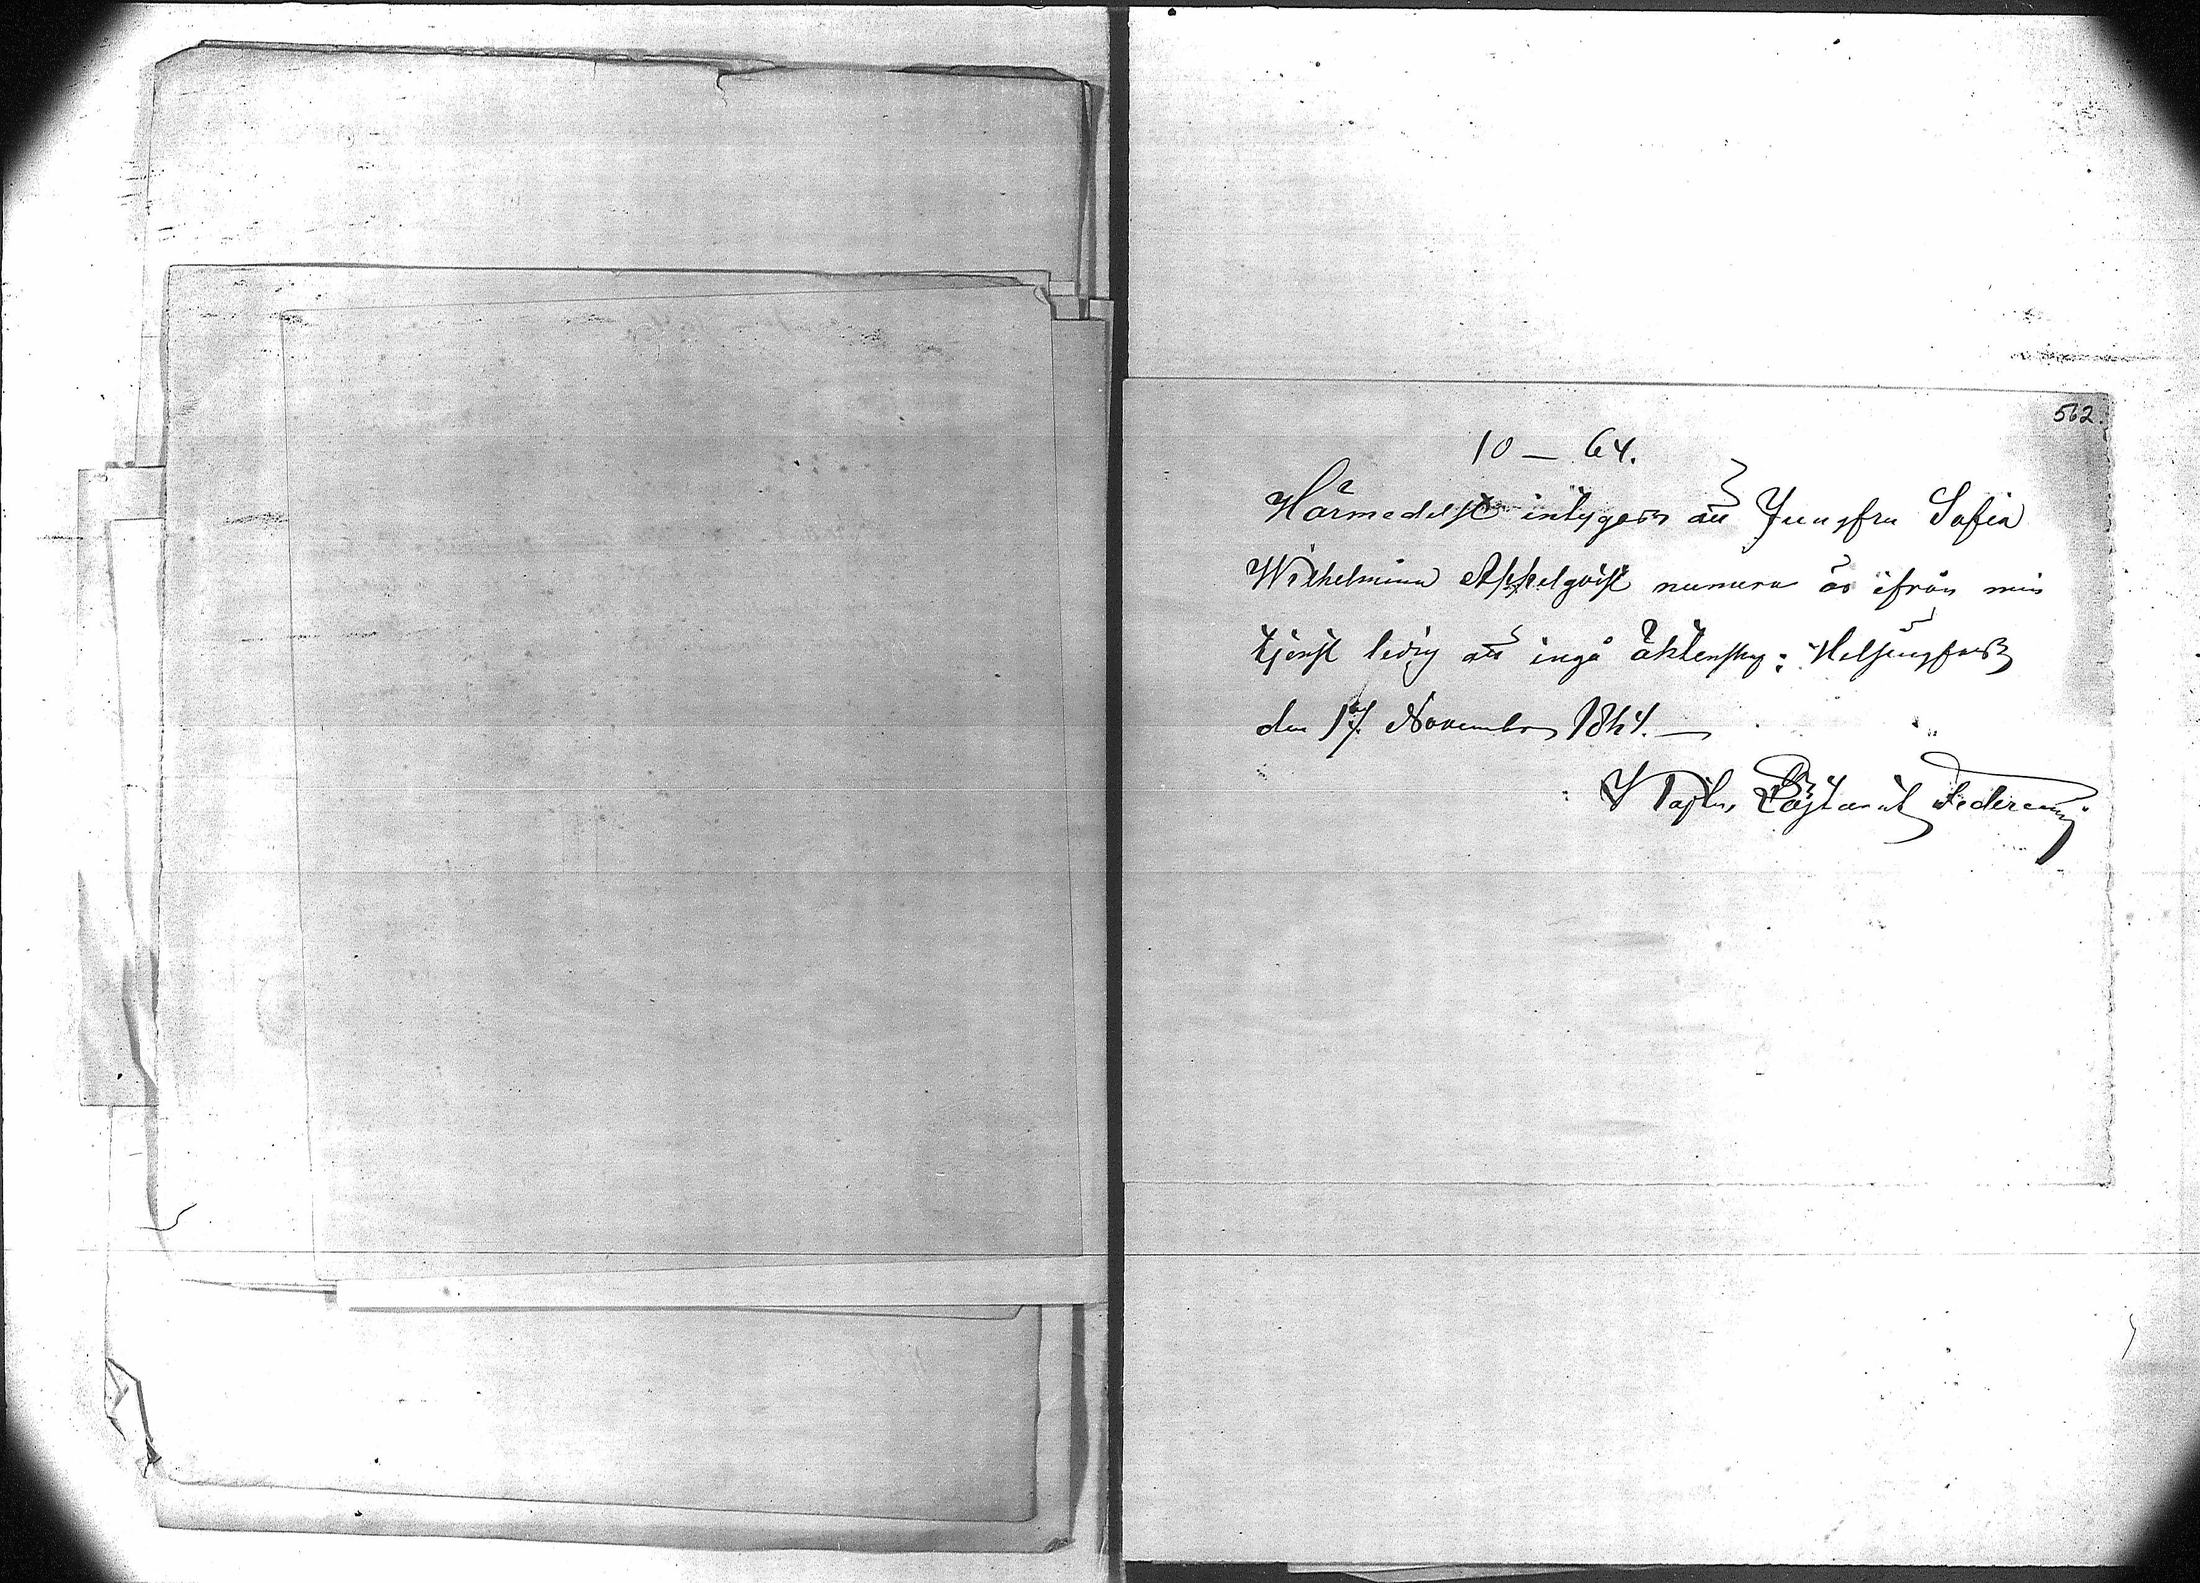 562.
10 — 64.
Härmedelst intygas att Jungfru Sofia
Wilhelmina Appelqvist numera är ifrån min
tjenst ledig att ingå äktenskap: Helsingfors
den 17 November 1864. —